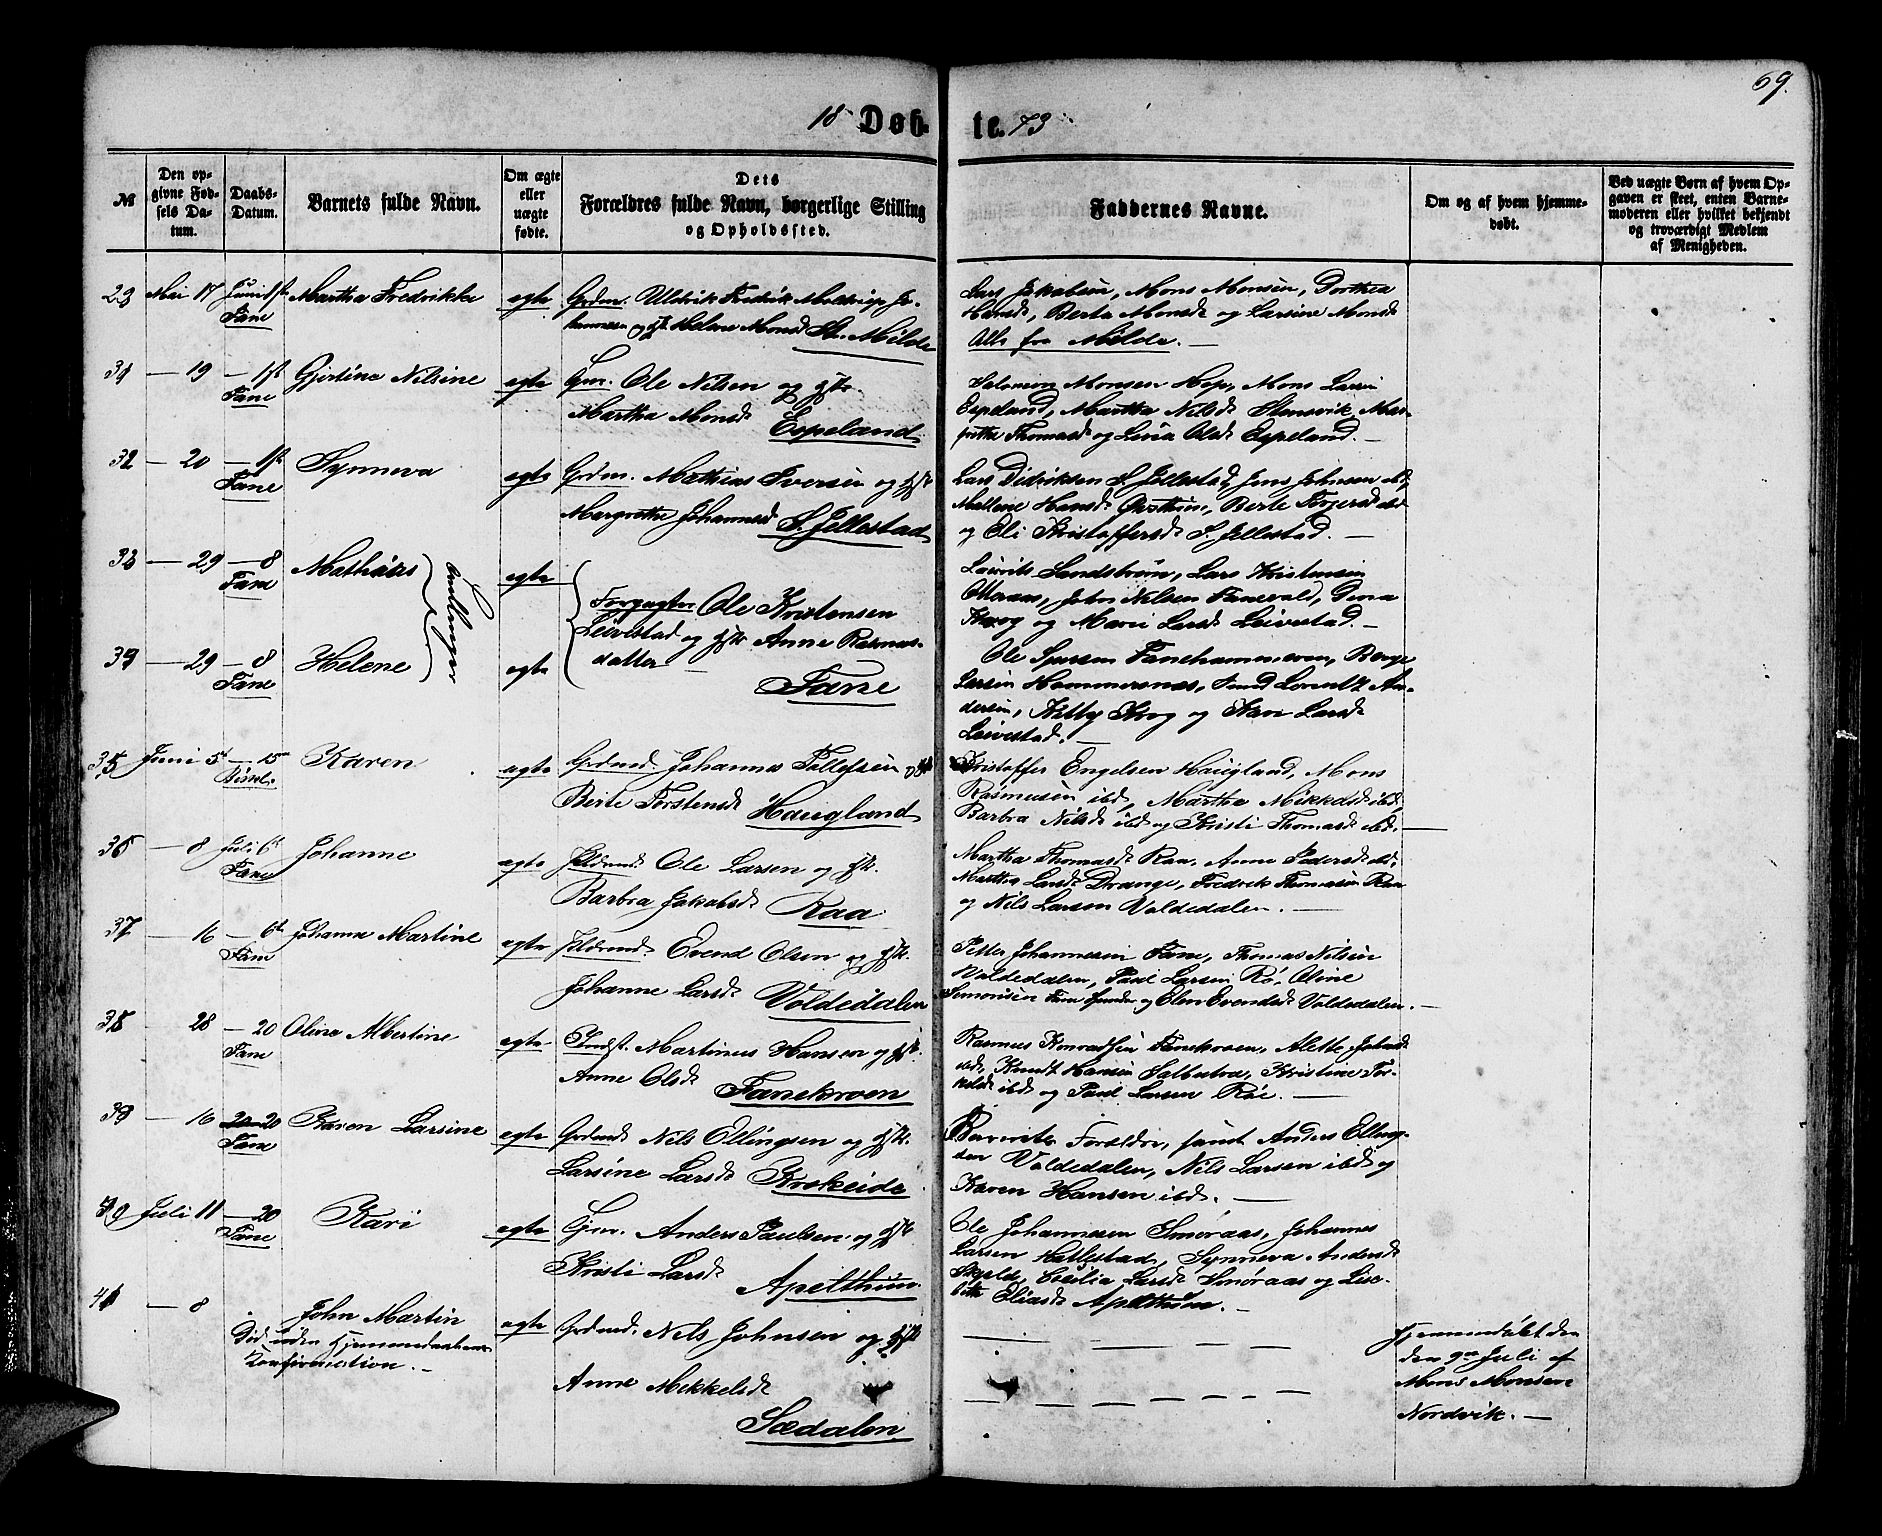 69.
18 Døb-
te. 73
№
Den opgivne Fødsels Datum.
Daabs-Datum.
Barnets fulde Navn.
Om ægte eller uægte fødte.
Dets Forældres fulde Navn, borgerlige Stilling og Opholdssted.
Faddernes Navne.
Om og af hvem hjemmedøbt.
Ved uægte Børn af hvem Opgaven er skeet, enten Barnemoderen eller hvilket bekjendt og troværdigt Medlem af Menigheden.
Mai 17 Juni 1ste Martha Fredrikke egte Grdm. Uldrik Fredrik Meltzer Jo-
Fane hannesen og Hst Helene Monsd St. Milde
Lars Jakobsen, Mons Monsen, Dorthea
Hansd, Berta Monsd og Larsine Monsd
Alle fra Milde. —
31 — 19 — 1st Gjertine Nilsine egte Gm. Ole Nilsen og Hst.
Fane Martha Monsd Espeland
Salomon Monsen Hop, Mons Larsen
Espeland, Martha Nilsd Stensvik, Mar-
gretha Thomasd og Olsd Espeland. —
32 — 20 — 1st Synneva egte Grdm. Mathias Iversen og Hst
Fane Margretha Johannesd S. Jellestad
Lars Didriksen S. Jellestad, Jens Johnsen ibd,
Hansd, Berte Torgersd ibd
og Eli Kristoffersd S. Jellestad. —
33 — 29 — 8 Mathias egte
Fane Tvillinger
Forpagter Ole Kristensen
Leivestad og Hst Anne Rasmus-
datter Fane
Laurits Sandstrøm, Lars Kristensen
Otteraas, John Nilsen Fanevald, Dina
Krog og Mari Larsd Leivestad —
34 — 29 — 8 Helene egte
Fane
Ole Fanehammeren, Børge
Larsen Hammersnes, Lorentz An-
dersen, Krog og Larsd
Leivestad. —
35 Juni 5t — 15 Karen egte Grdmd. Johannes Tollefsen og Hst
Berte Torstensd Haugland
Kristoffer Engelsen Haugland, Mons
Rasmussen ibd, Martha Mikkelsd ibd,
Barbra Nilsd ibd og Kristi Thomasd ibd. —
36 — 8 Juli 6t Johanne egte Ole Larsen og Hst.
Fane Barbra Jakobsd Raa
Martha Thomasd Raa, Anne Pedersd ibd,
Martha Larsd Drange, Fredrik Thomasen Raa
og Nils Larsen Voldedalen. —
37 — 16 — 6t Johanne Martine egte Evend Olsen og Hst.
Fane Johanne Larsd Voldedalen
Petter Johannesen Fane, Thomas Nilsen
Voldedalen, Paul Larsen Rø, Oline
Simonsen Fane og Elen Evendsd Voldedalen. —
38 28 — 20 Oline Albertine egte Indst. Martinus Hansen og Hst.
Fane Anne Olsd Fanekroen
Rasmus Konradsen Fanekroen, Alette
ibd, Knudt Hansen Kristine Tor-
kelsd ibd og Paul Larsen Røe. —
39 — 16 20 20 Karen Larsine egte Grdmd Nils Ellingsen og Hst.
Fane Larsine Larsd Krokeide
Barnets Forældre, samt Anders Elling-
sen Voldedalen, Nils Larsen ibd og
Karen Hansen ibd. —
Juli 11 — 20 Kari egte Gm. Anders Paulsen og Hst
Fane Kristi Larsd Apelthun
Ole Johannesen Smøraas, Johannes
Larsen Hatlestad, Synneva Andersd
Cecilia Larsd Smøraas og Lise-
beth Eliasd Apelthun. —
41 — 8 John Martin egte Grdmd. Nils Johnsen og Hst
Død uden Hjemmedaabens
Konfirmation. —
Anne Mikkelsd
Sædalen
Hjemmedøbt den
den 9de Juli af
Mons Monsen
Nordvik. —